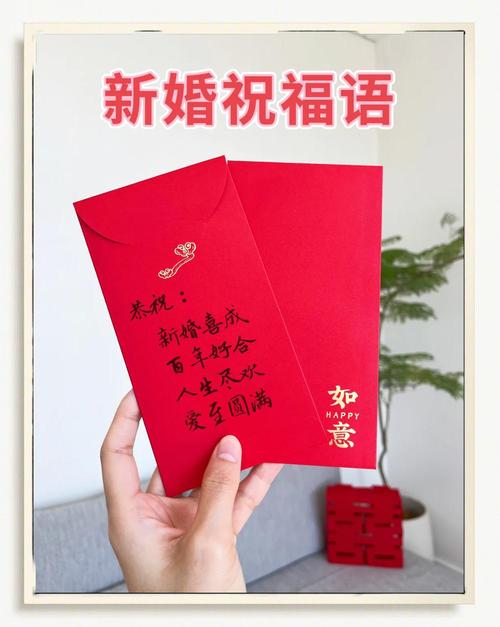 新婚祝福语
恭祝：
新婚喜成
百年好合
人生尽欢
爱至圆满
如
HAPPY
意